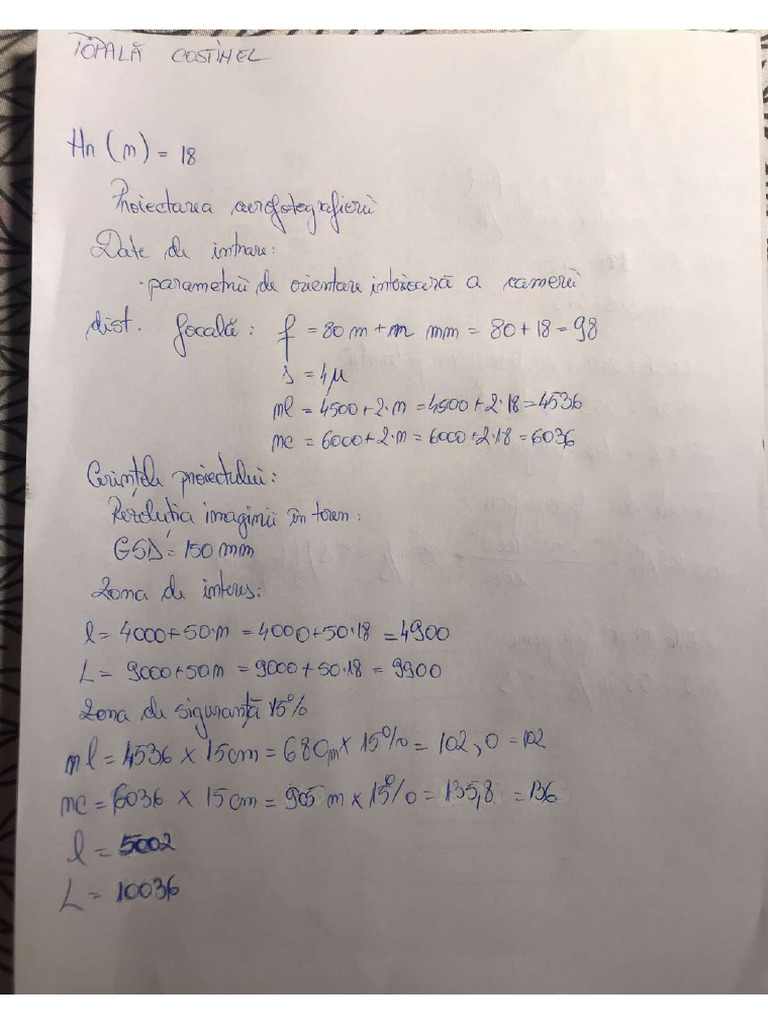 TOPALĂ COSTINEL
Hn (m) = 18
Proiectarea aerofotografierii
Date de intrare:
· parametrii de orientare interioară a camerei
dist. focală : f = 80 m + m mm = 80 + 18 = 98
s = 4μ
ml = 4500 + 2·m = 4500 + 2·18 = 4536
mc = 6000 + 2·m = 6000 + 2·18 = 6036
Cerințele proiectului:
Rezoluția imaginii în teren:
GSD = 150 mm
Zona de interes:
l = 4000 + 50·m = 4000 + 50·18 = 4900
L = 9000 + 50m = 9000 + 50·18 = 9900
Zona de siguranță 15%
ml = 4536 × 15cm = 680m × 15% = 102,0 = 102
mc = 6036 × 15cm = 905 m × 15% = 135,8 = 136
l = 5002
L = 10036